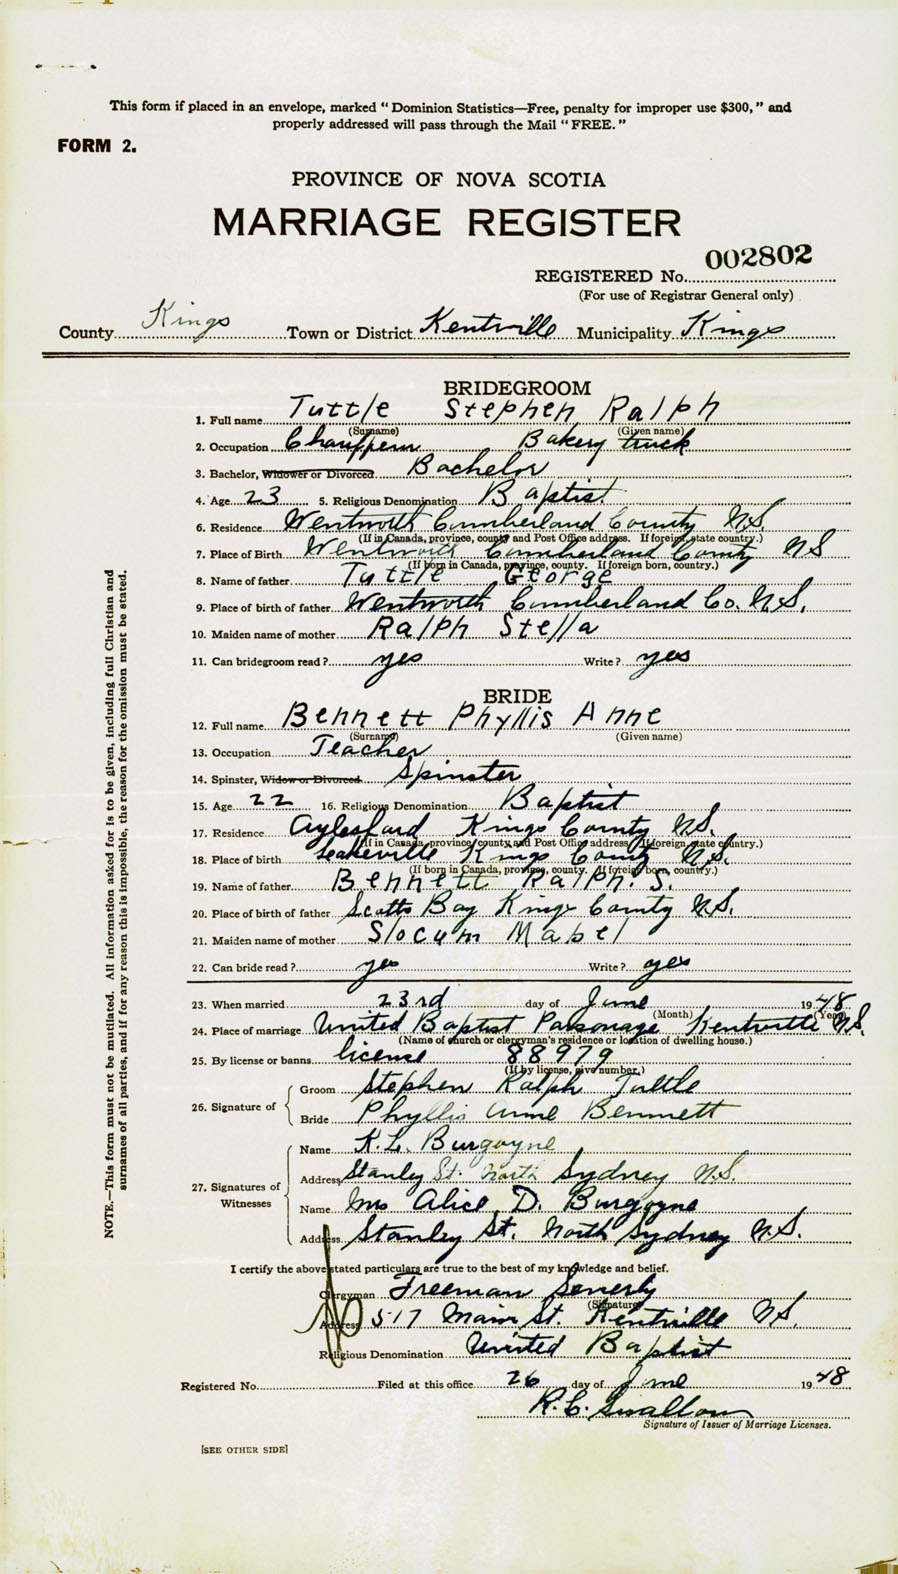 This form if placed in an envelope, marked “ Dominion Statistics—Free, penalty for improper use $300, ” and
properly addressed will pass through the Mail “ FREE. ”
FORM 2.
PROVINCE OF NOVA SCOTIA
MARRIAGE REGISTER
REGISTERED No. 002802
(For use of Registrar General only)
County Kings Town or District Kentville Municipality Kings
BRIDEGROOM
1. Full name Tuttle Stephen Ralph
(Surname) (Given name)
2. Occupation Chauffeur Bakery truck
3. Bachelor, Widower or Divorced Bachelor
4. Age 23 5. Religious Denomination Baptist
6. Residence Wentworth Cumberland County N.S.
(If in Canada, province, county and Post Office address. If foreign, state country.)
7. Place of Birth Wentworth Cumberland County NS
(If born in Canada, province, county. If foreign born, country.)
8. Name of father Tuttle George
9. Place of birth of father Wentworth Cumberland Co. N.S.
10. Maiden name of mother Ralph Stella
11. Can bridegroom read ? yes Write ? yes
BRIDE
12. Full name Bennett Phyllis Anne
(Surname) (Given name)
13. Occupation Teacher
14. Spinster, Widow or Divorced Spinster
15. Age 22 16. Religious Denomination Baptist
17. Residence Aylesford Kings County N.S.
(If in Canada, province, county and Post Office address. If foreign, state country.)
18. Place of birth Kings County N.S.
(If born in Canada, province, county. If foreign born, country.)
19. Name of father Bennett Ralph. S.
20. Place of birth of father Scotts Bay Kings County N.S.
21. Maiden name of mother Slocum Mabel
22. Can bride read ? yes Write ? yes
23. When married 23rd day of June 1948
(Month) (Year)
24. Place of marriage United Baptist Parsonage Kentville N.S.
(Name of church or clergyman's residence or location of dwelling house.)
25. By license or banns license 88979
(If by license, give number.)
26. Signature of Groom Stephen Ralph Tuttle
Bride Phyllis Anne Bennett
27. Signatures of Witnesses Name K.L. Burgoyne
Address Stanley St. North Sydney N.S.
Name Mrs Alice D. Burgoyne
Address Stanley St. North Sydney N.S.
I certify the above stated particulars are true to the best of my knowledge and belief.
Clergyman Freeman Fenerty
(Signature)
Address 517 Main St. Kentville N.S.
Religious Denomination United Baptist
Registered No. Filed at this office 26 day of June 1948
R.C. Swallow
Signature of Issuer of Marriage Licenses.
[SEE OTHER SIDE]
NOTE.—This form must not be mutilated. All information asked for is to be given, including full Christian and
surnames of all parties, and if for any reason this is impossible, the reason for the omission must be stated.